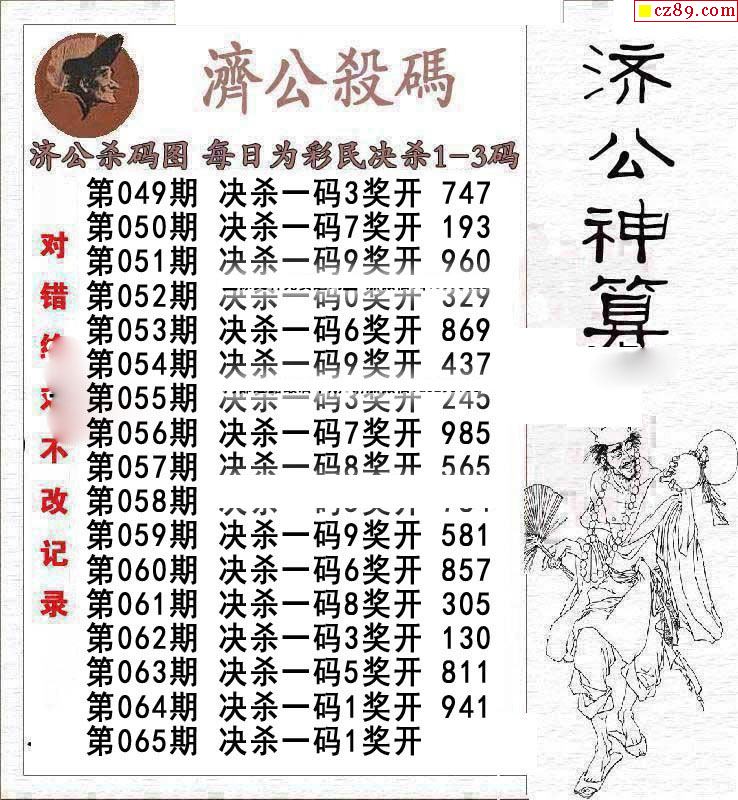 cz89.com
濟公殺碼
济公杀码图 每日为彩民决杀1-3码
第049期 决杀一码3奖开 747
第050期 决杀一码7奖开 193
第051期 决杀一码9奖开 960
第052期 决杀一码0奖开 329
第053期 决杀一码6奖开 869
第054期 决杀一码9奖开 437
第055期 决杀一码3奖开 245
第056期 决杀一码7奖开 985
第057期 决杀一码8奖开 565
第058期
第059期 决杀一码9奖开 581
第060期 决杀一码6奖开 857
第061期 决杀一码8奖开 305
第062期 决杀一码3奖开 130
第063期 决杀一码5奖开 811
第064期 决杀一码1奖开 941
第065期 决杀一码1奖开
对错绝对不改记录
济公神算